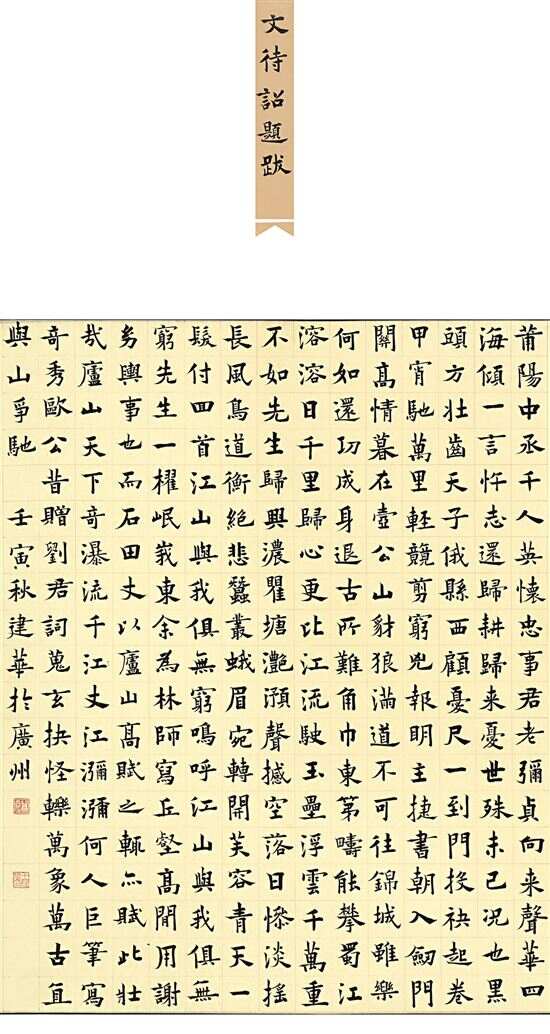 文待詔題跋
莆陽中丞千人英懷忠事君老彌貞向来聲華四
海傾一言忤志還歸耕歸来憂世殊未已况也黑
頭方壮齒天子俄縣西顧憂尺一到門投袂起卷
甲宵馳萬里輕競剪窮兇報明主捷書朝入劒門
關高情暮在壺公山豺狼滿道不可往錦城雖樂
何如還功成身退古所難角巾東第疇能攀蜀江
溶溶日千里歸心更比江流駛玉壘浮雲千萬重
不如先生歸興濃瞿塘灧澦聲撼空落日慘淡摇
長風鳥道衡絶悲蠶叢蛾眉宛轉開芙容青天一
髮付四首江山與我俱無窮鳴呼江山與我俱無
窮先生一櫂岷峩東余為林師寫丘壑高閒用謝
多輿事也而石田丈以廬山高賦之輒亦賦此壮
哉廬山天下奇瀑流千江丈江瀰瀰何人巨筆寫
奇秀歐公昔贈劉君詞蒐玄抉怪轢萬象萬古直
與山爭馳 壬寅秋建華於廣州